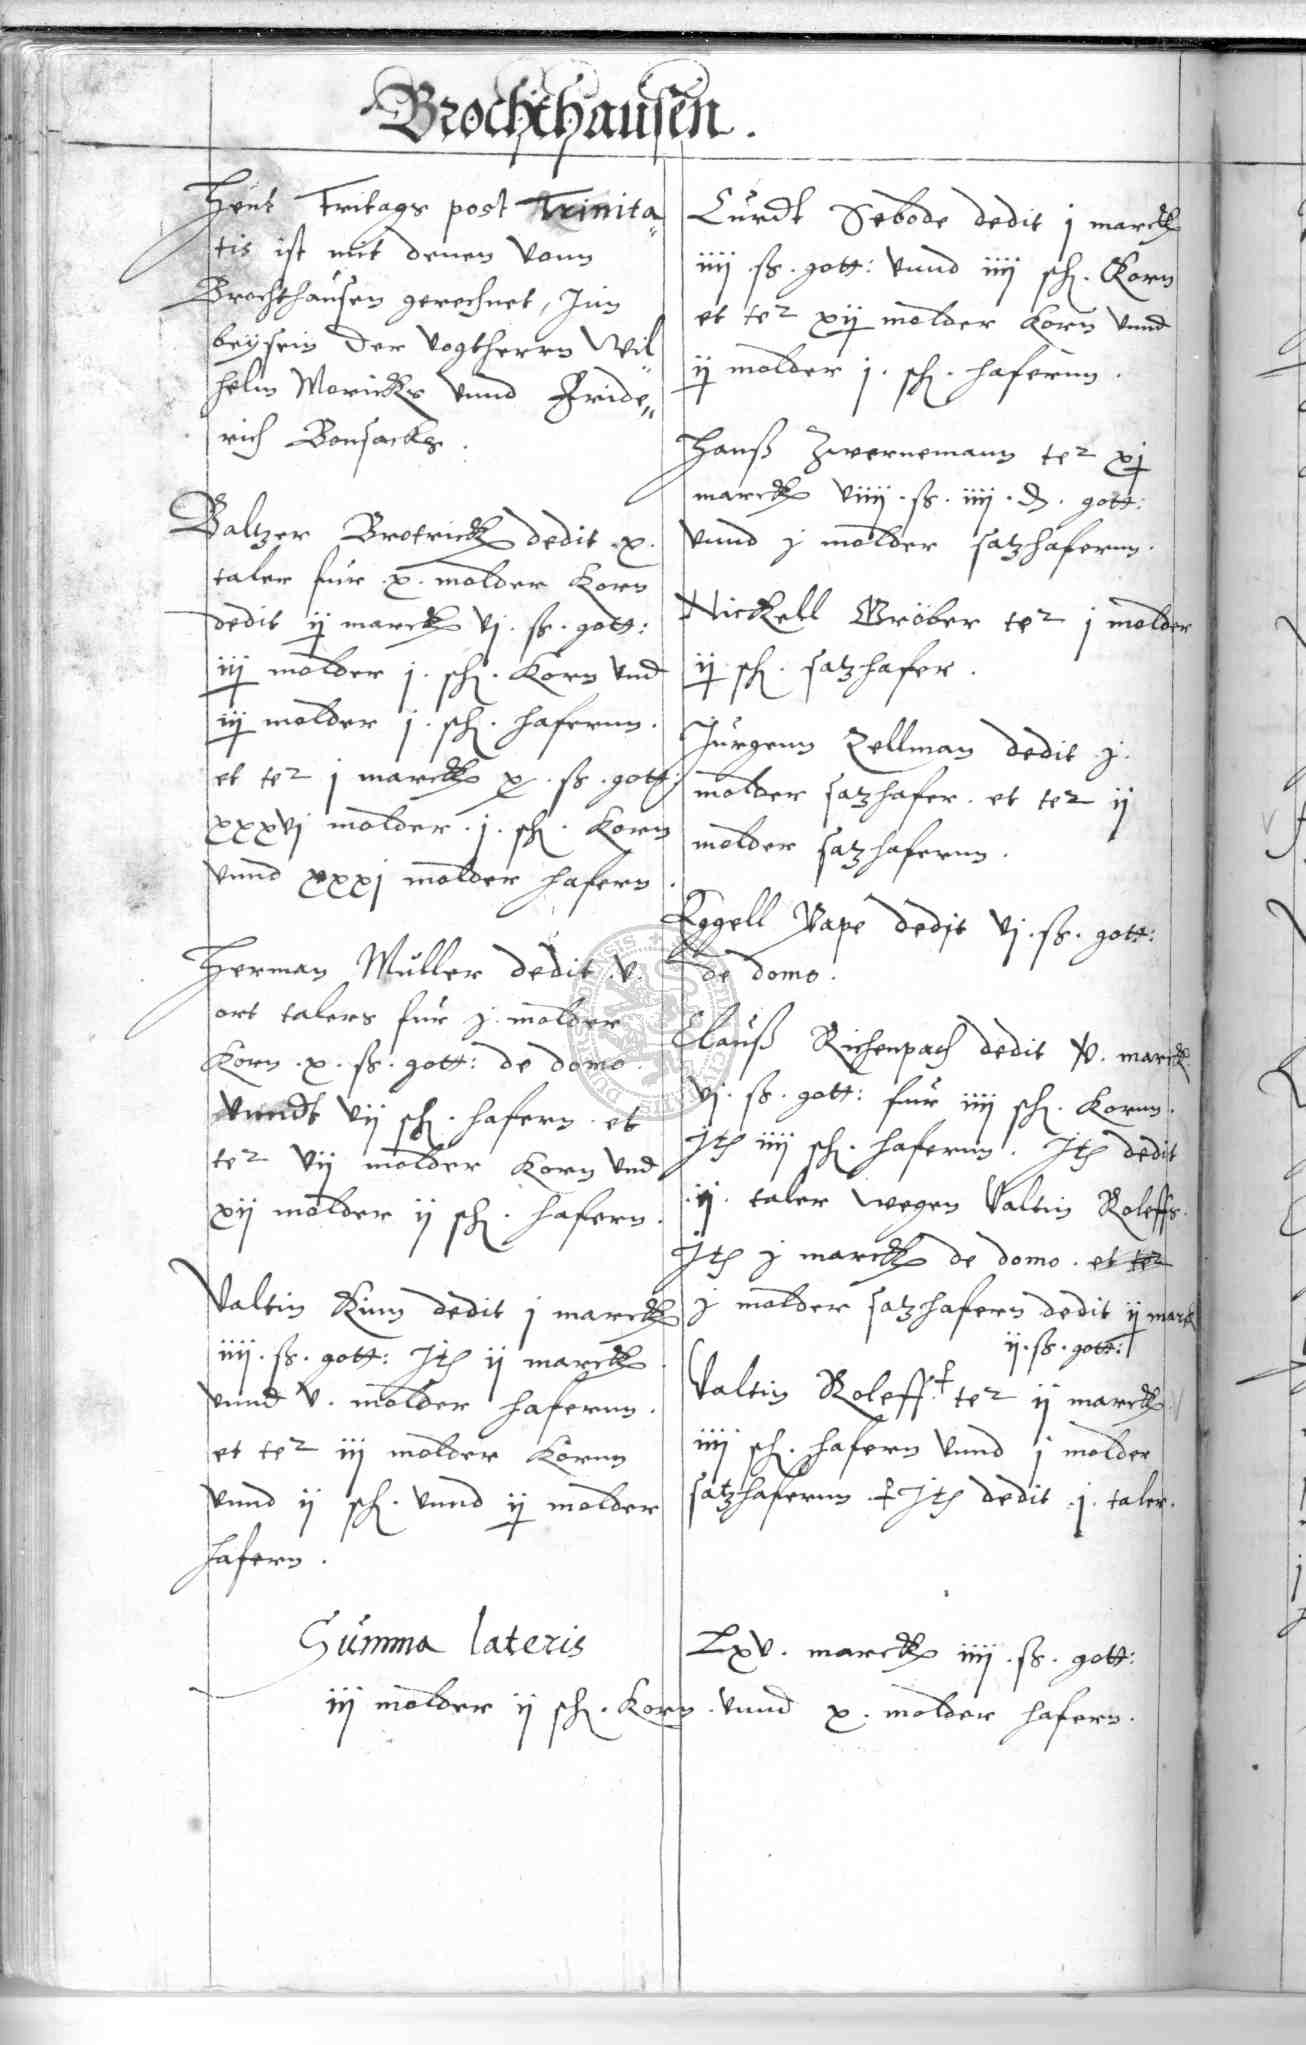 Brochthausen.
Heut Fritags post Trinita„
tis ist mit denen vonn
Brochthausen gerechnet, Inn
beysein der vogtherrn Wil„
helm Morickes vnnd Fride„
rich Bonsacks.
Baltzer Brotrick dedit .x.
taler fur .x. molder Korn
dedit ij marck vj. ß. gott:
iij molder j. sch. Korn vnd
iij molder j. sch. hafernn.
et ter j marck x. ß. gott:
xxxvj molder .j. sch. Korn
vnnd xxxj molder hafern.
Herman Müller dedit .v.
ort talers fur j. molder
Korn .x. ß. gott: de domo.
vnndt vij sch. hafern. et
ter vij molder Korn vnd
xij molder ij sch. hafern.
Valtin Kinn dedit j marck
iiij. ß. gott: Jtem ij marck
vnnd v. molder hafernn.
et ter iij molder Kornn
vnnd ij sch. vnnd ij molder
hafern.
Curdt Sebode dedit j marck
iiij .ß. gott: vnnd iiij sch. Korn
et ter xij molder Korn vnnd
ij molder j. sch. hafernn.
Hanß Zwernemann ter xj
marck viiij .ß. iiij .d. gott:
vnnd j molder satzhafernn.
Nickell Gröber ter j molder
ij sch. satzhafer.
Jurgenn Zellman dedit j.
molder satzhafer. et ter ij
molder satzhafernn.
Eggell Pape dedit vj. ß. gott:
de domo.
Clauß Richenpach dedit v. marck
vj. ß. gott: fur iiij sch. Kornn.
Jtem iiij sch. hafernn. Jtem dedit
.ij. taler wegen Valtin Roleffs.
Jtem j marck de domo. et ter
j molder satzhafern dedit ij marck
ij. ß. gott:
Valtin Roleff.† ter ij marck
iiij sch. hafern vnnd j molder
satzhafernn † Jtem dedit .j. taler.
Summa lateris Lxv. marck iiij .ß. gott:
iij molder ij sch. Korn. vnnd x. molder hafern.